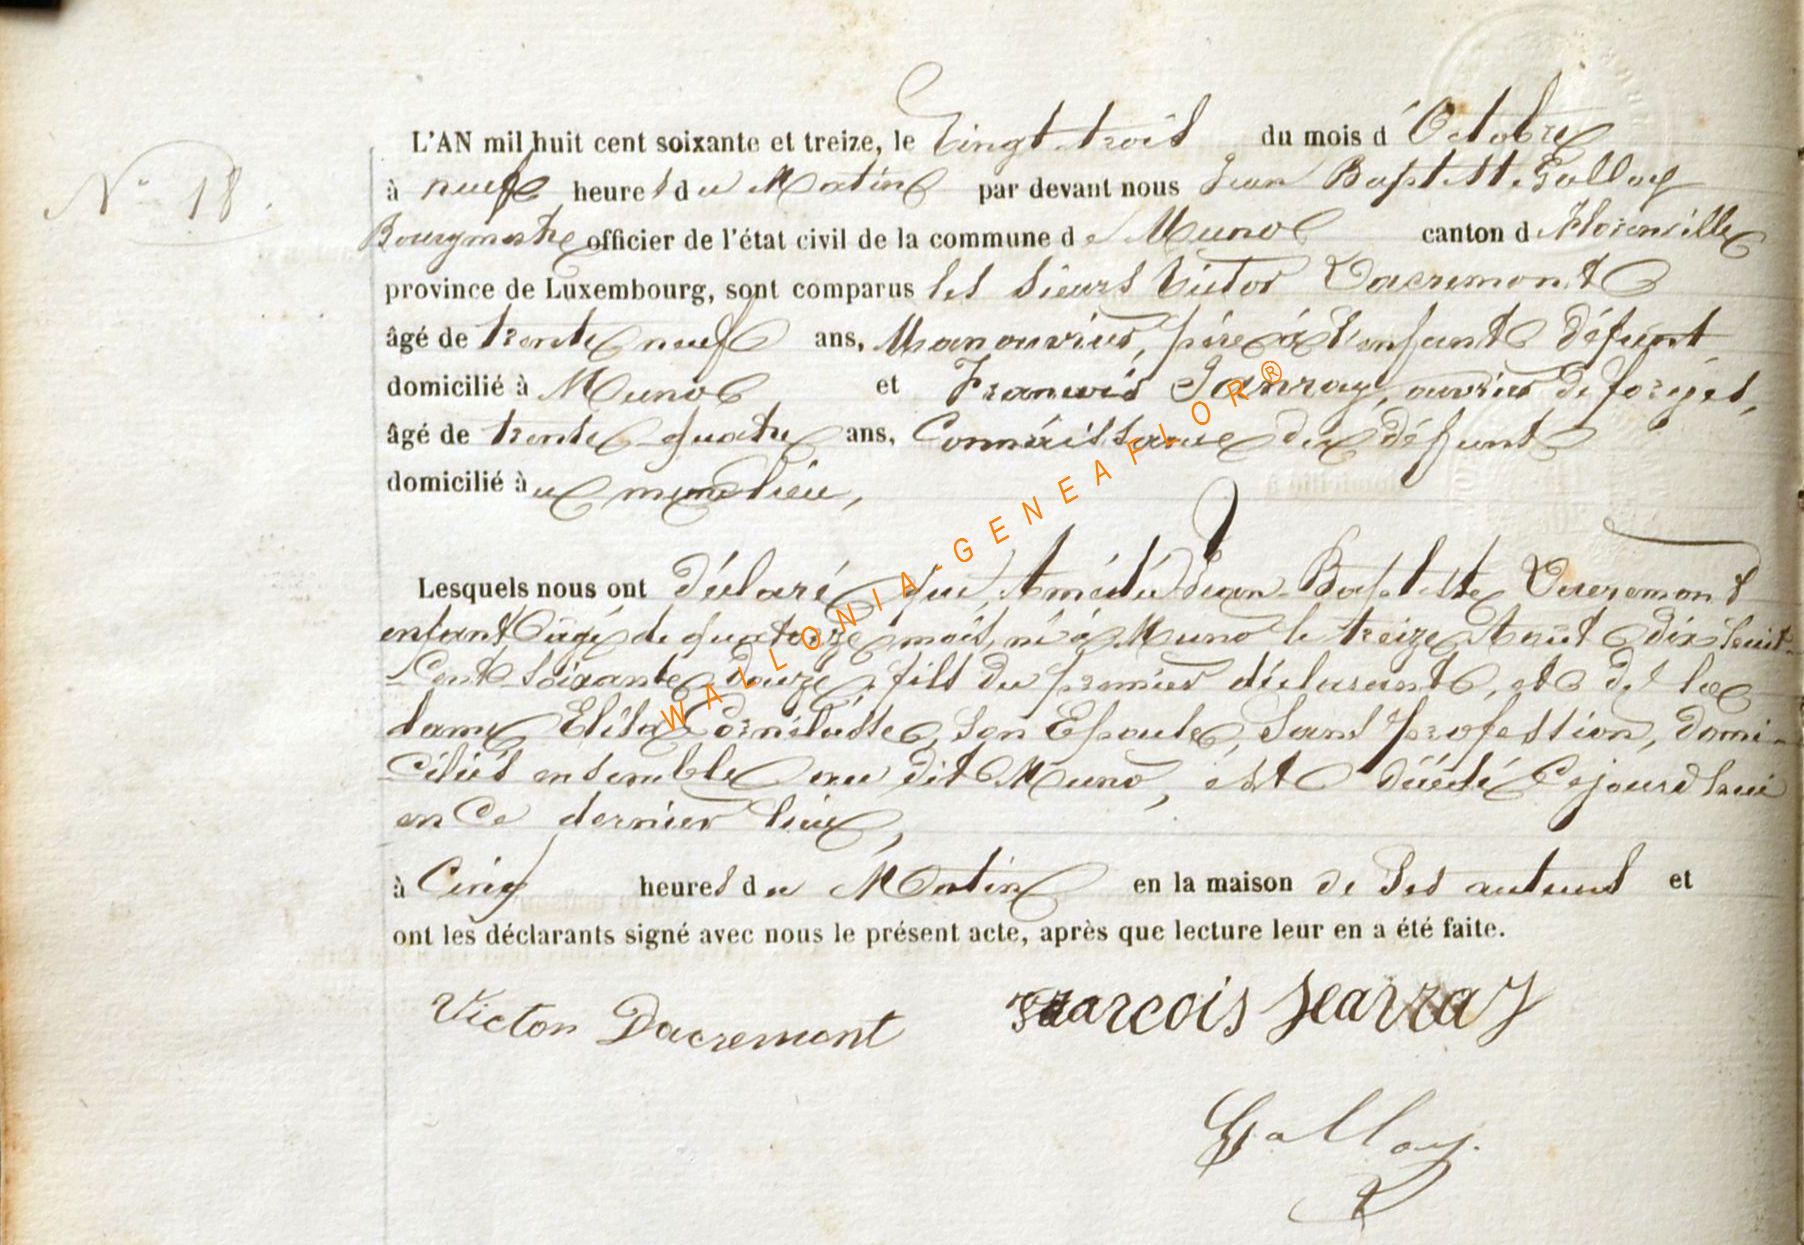 N° 18.
L'AN mil huit cent soixante et treize, le Vingt-trois du mois d'Octobre
à neuf heures du Matin par devant nous Jean Baptiste Galloy
Bourgmestre officier de l'état civil de la commune de Muno canton de Florenville
province de Luxembourg, sont comparus les sieurs Victor Dacremont
âgé de trente neuf ans, Manouvrier, père à l'enfant défunt
domicilié à Muno et Francois Janray, ouvrier de forges,
âgé de trente-quatre ans, Connaissance du défunt
domicilié à au même lieu,
Lesquels nous ont déclaré que, Amédé Jean-Baptiste Dacremont
enfant âgé de quatorze mois, né à Muno le treize Août dix huit-
Cent soixante douze, fils du premier déclarant, et de la
dame Elisa son Epouse, Sans profession, domi-
ciliés ensemble au dit Muno, est décédé Cejourd'hui
en Ce dernier lieu,
à Cinq heures du Matin en la maison de Ses auteurs et
ont les déclarants signé avec nous le présent acte, après que lecture leur en a été faite.
Victor Dacremont Francois Jearray
Galloy.
WALLONIA-GENEAFLOR®